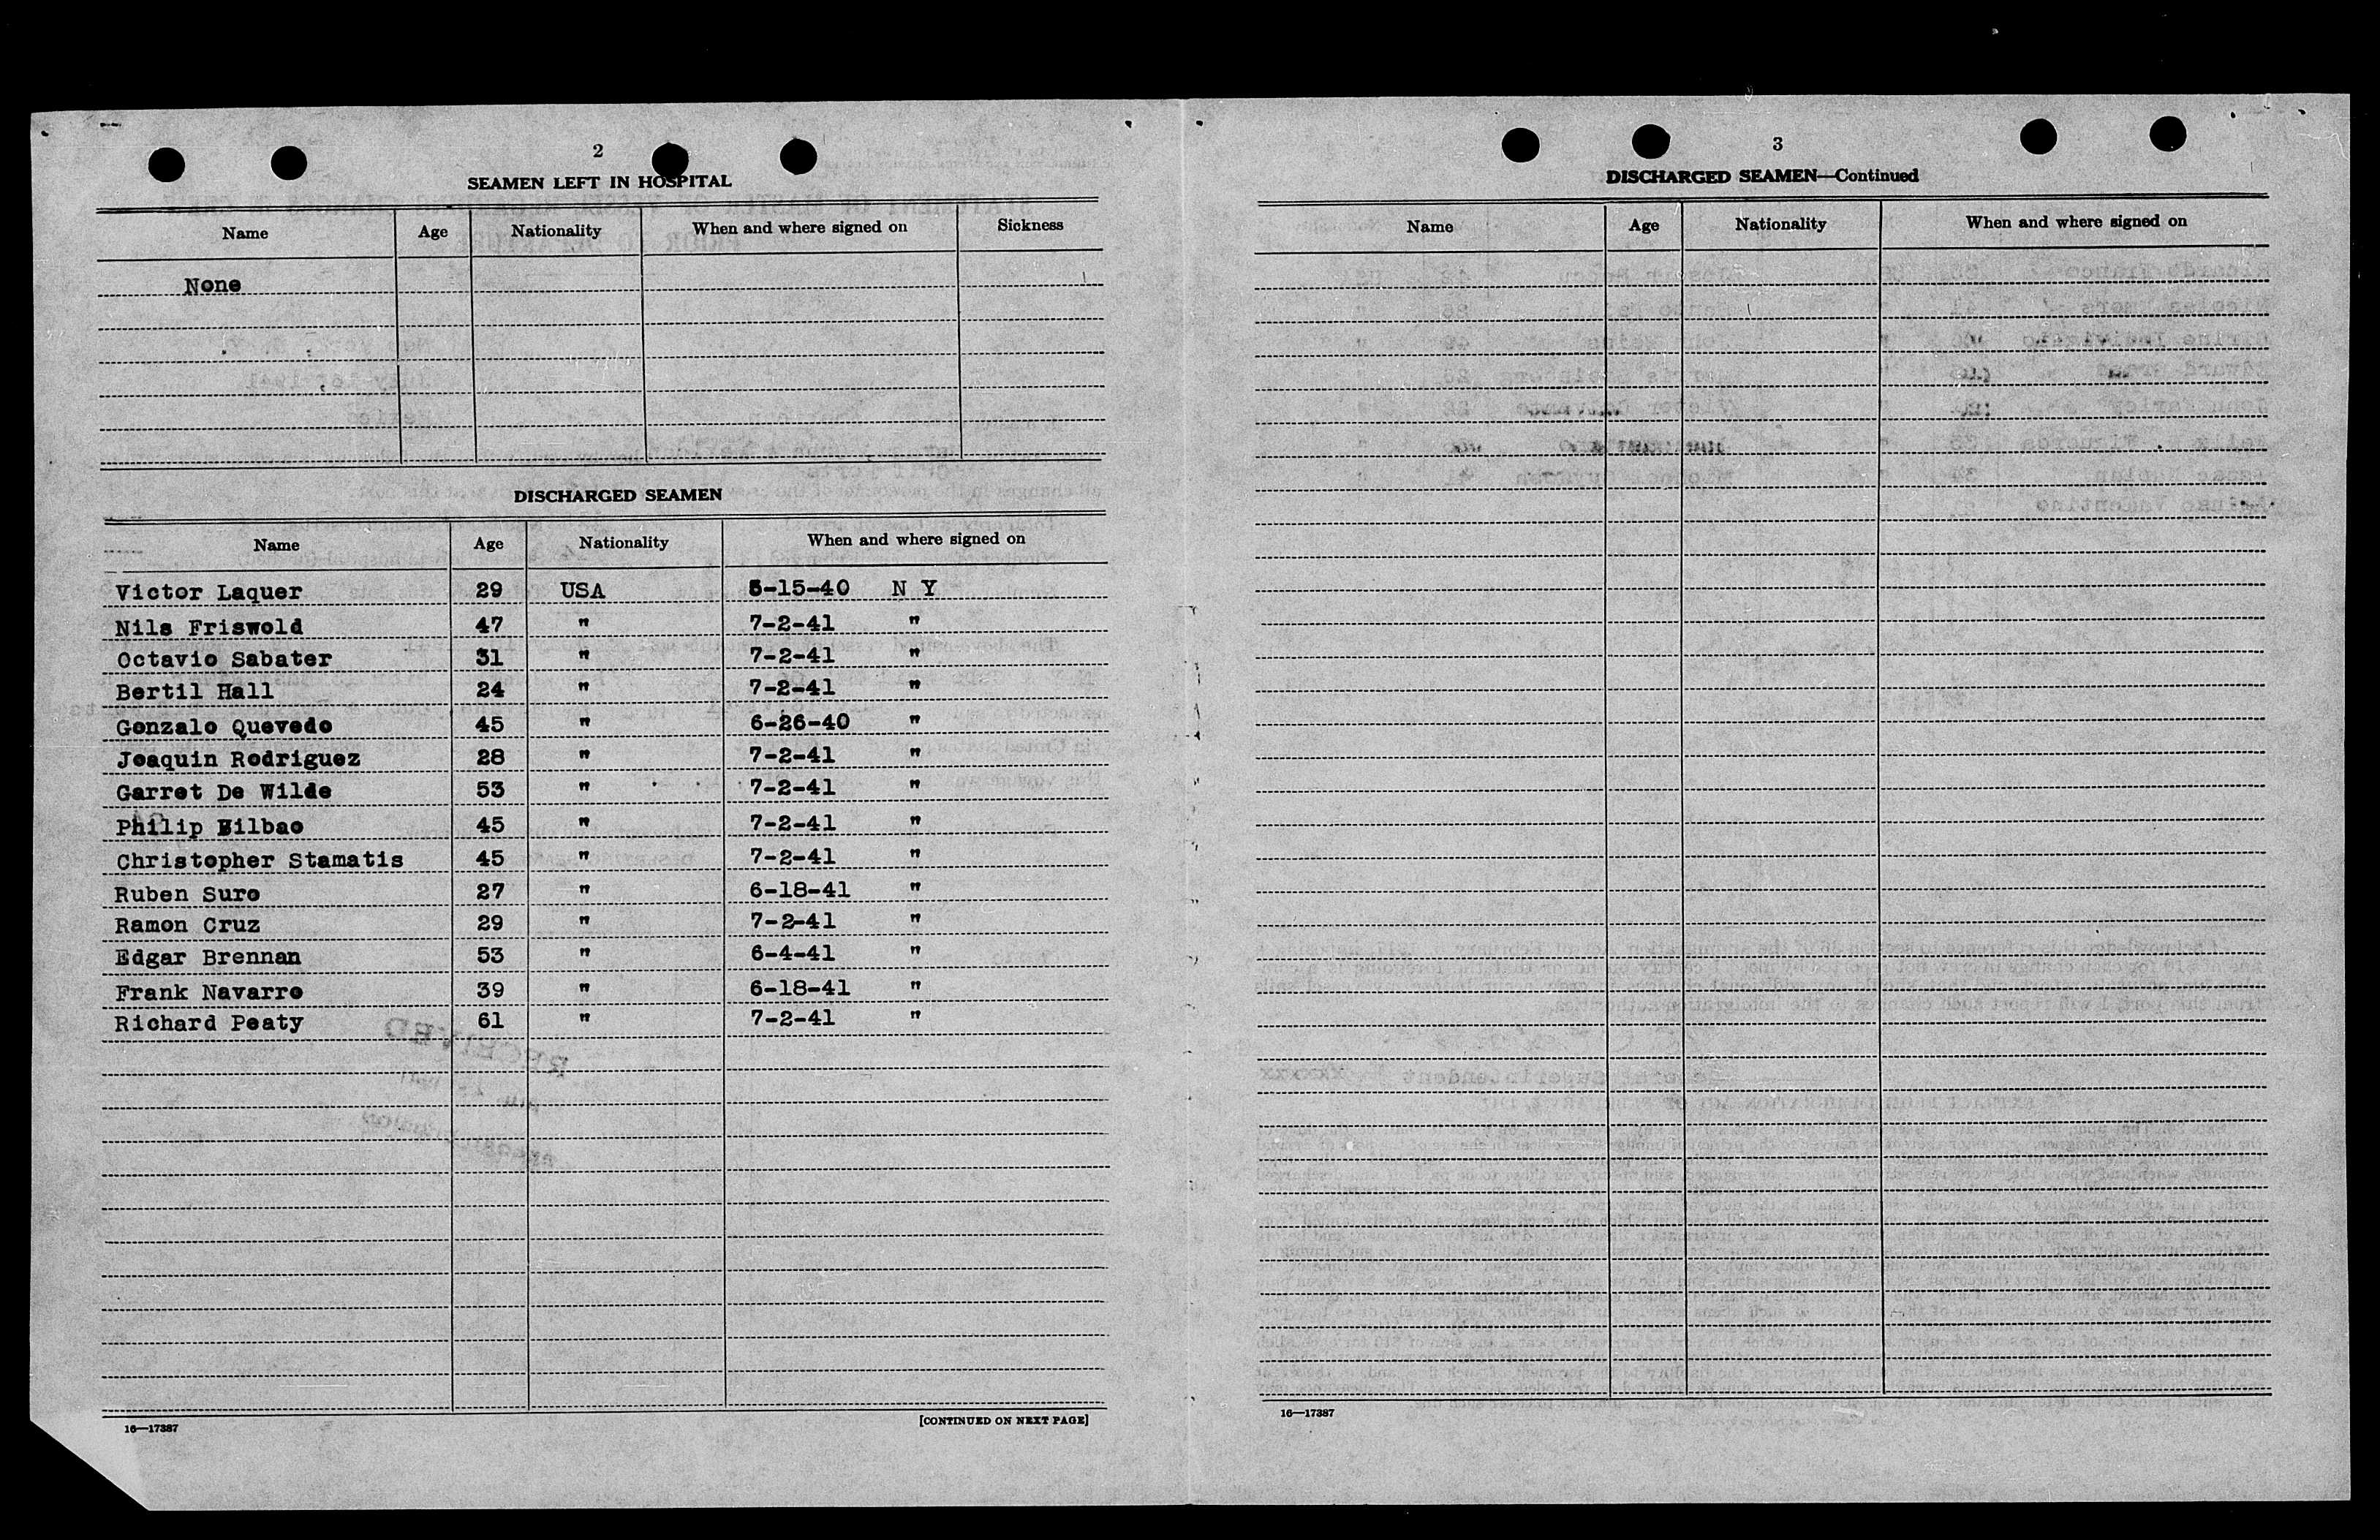 2
SEAMEN LEFT IN HOSPITAL
Name Age Nationality When and where signed on Sickness
None
DISCHARGED SEAMEN
Name Age Nationality When and where signed on
Victor Laquer 29 USA 5-15-40 N Y
Nils Friswold 47 " 7-2-41 "
Octavio Sabater 31 " 7-2-41 "
Bertil Hall 24 " 7-2-41 "
Gonzalo Quevedo 45 " 6-26-40 "
Joaquin Rodriguez 28 " 7-2-41 "
Garret De Wilde 53 " 7-2-41 "
Philip Bilbao 45 " 7-2-41 "
Christopher Stamatis 45 " 7-2-41 "
Ruben Suro 27 " 6-18-41 "
Ramon Cruz 29 " 7-2-41 "
Edgar Brennan 53 " 6-4-41 "
Frank Navarro 39 " 6-18-41 "
Richard Peaty 61 " 7-2-41 "
16—17387
[CONTINUED ON NEXT PAGE]
3
DISCHARGED SEAMEN—Continued
Name Age Nationality When and where signed on
16—17387